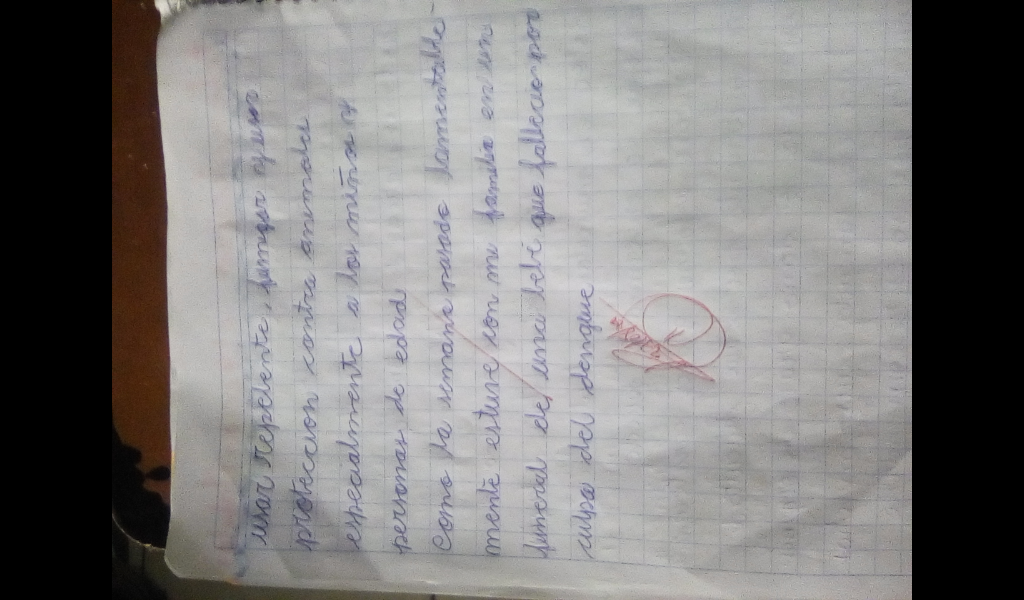 usar repelente, fumigar y usar
proteccion contra animales
especialmente a los niños y
personas de edad
Como la semana pasada lamentable-
mente estuve con mi familia en un
funeral de una bebe que fallecio por
culpa del dengue